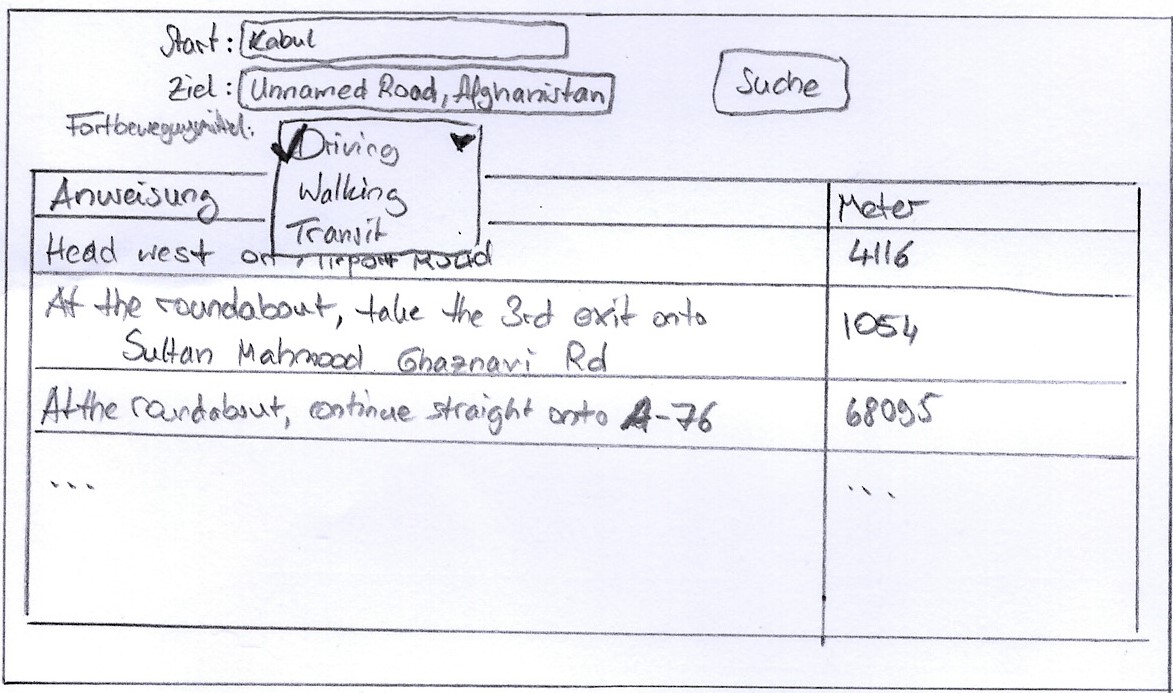 Start: Kabul
Ziel: Unnamed Road, Afghanistan
Suche
Fortbewegungsmittel:
Driving
Walking
Transit
Anweisung
Meter
Head west on Airport Road
4116
At the roundabout, take the 3rd exit onto
Sultan Mahmood Ghaznavi Rd
1054
At the roundabout, continue straight onto A-76
68095
...
...